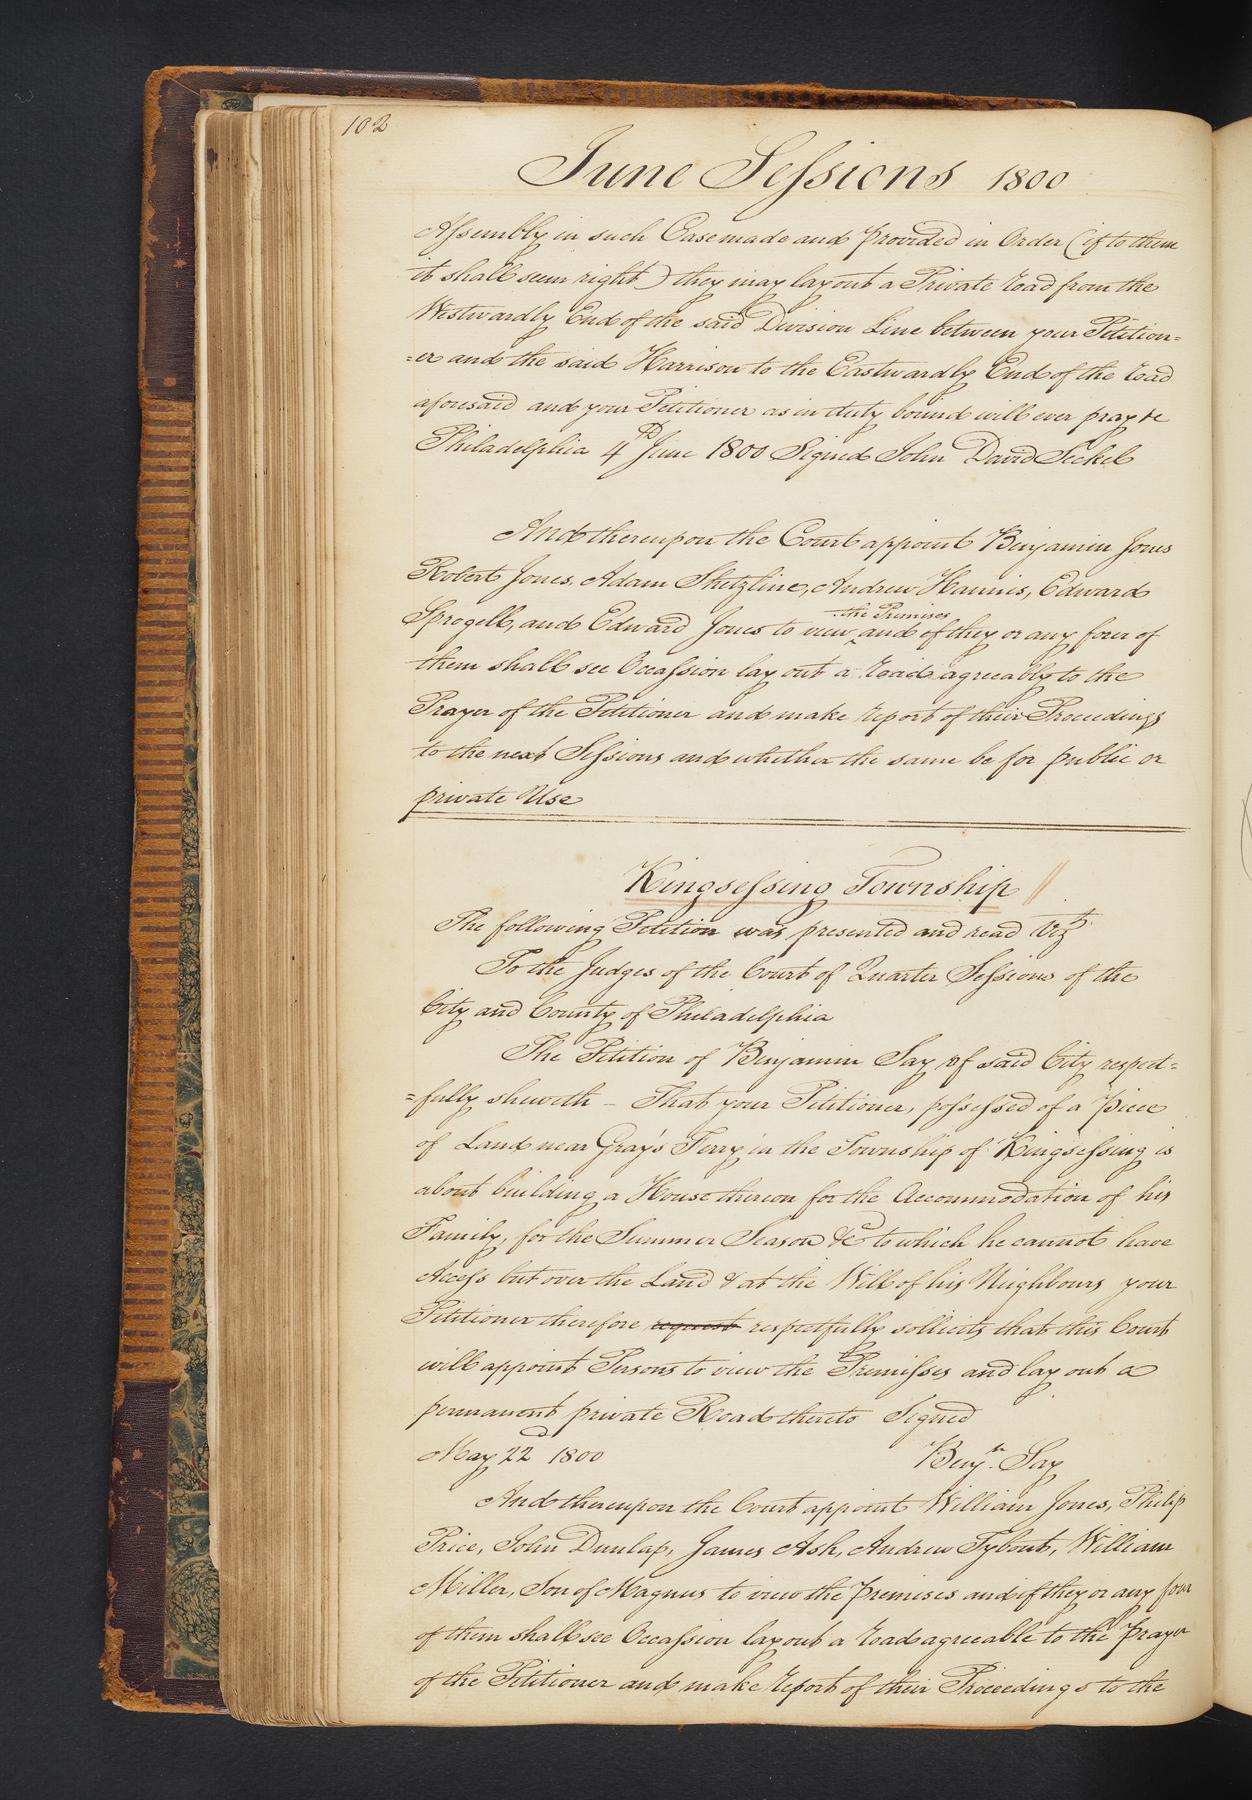 102
June Sessions 1800
Assembly in such Case made and provided in Order (if to them
it shall seem right) they may lay out a Private road from the
Westwardly End of the said Division Line between your Petition=
=er and the said Harrison to the Eastwardly End of the road
aforesaid and your Petitioner as in duty bound will ever pray &c
Philadelphia 4th June 1800 Signed John David Seckel
And thereupon the Court appoint Benjamin Jones
Robert Jones, Adam Shetzline, Andrew Hannis, Edward
the Premises
Sprogell, and Edward Jones to view ‸ and if they or any four of
them shall see Occassion lay out a road agreeably to the
Prayer of the Petitioner and make report of their Proceedings
to the next Sessions and whether the same be for public or
private Use
Kingsessing Township //
The following Petition was presented and read Vizt
To the Judges of the Court of Quarter Sessions of the
City and County of Philadelphia
The Petition of Benjamin Say of said City respect=
=fully sheweth – That your Petitioner, possessed of a Piece
of Land near Gray's Ferry in the Township of Kingsessing is
about building a House thereon for the Accommodation of his
Family, for the Summer Season &c to which he cannot have
Access but over the Land & at the Will of his Neighbours your
Petitioner therefore request respectfully sollicits that this Court
will appoint Persons to view the Premisses and lay out a
permanent private Road thereto Signed
May 22d 1800 Benjn. Say
And thereupon the Court appoint William Jones, Philip
Price, John Dunlap, James Ash, Andrew Tybout, William
Miller, Son of Magnus to view the premises and if they or any four
of them shall see Occassion lay out a road agreeable to the Prayer
of the Petitioner and make report of their Proceedings to the